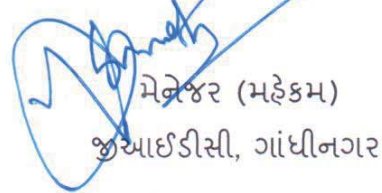 મેનેજર (મહેકમ)
જીઆઈડીસી, ગાંધીનગર